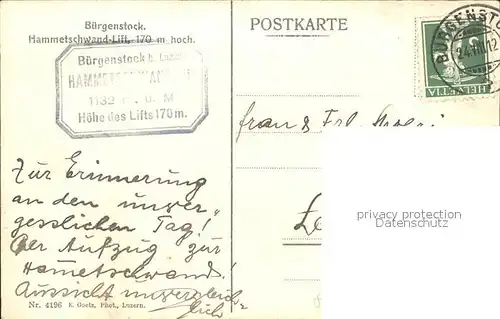 Bürgenstock.
Hammetschwand-Lift, 170 m hoch.
Bürgenstock b. Luzern
HAMMETSCHWAND
1132 m ü. M
Höhe des Lifts 170 m.
Zur Erinnerung
an den unver„
gesslichen Tag!
Der Aufzug zur
Hametschwand!
Aussicht unvergleich„
lich
Nr. 4196 E. Goetz, Phot., Luzern.
POSTKARTE
BÜRGENSTO
HELVETIA
Frau & Frl
privacy protection
oldthing.de